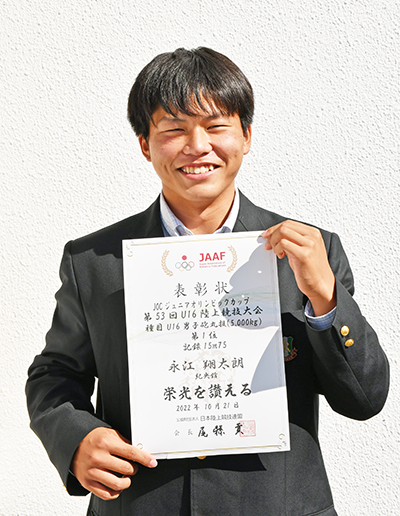 JAAF
表彰状
JOCジュニアオリンピックカップ
第53回U16陸上競技大会
種目 U16男子砲丸投(5.000kg)
第1位
記録 15m75
永江 翔太朗
栄光を讃える
2022年10月21日
日本陸上競技連盟
会長 尾縣 貢